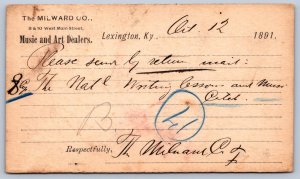 The MILWARD CO.,
8 & 10 West Main Street,
Music and Art Dealers.
Lexington, Ky., Oct 12 1891.
Please send by return mail:
The Natl Writing lesson and
B
Respectfully, The Milward Co